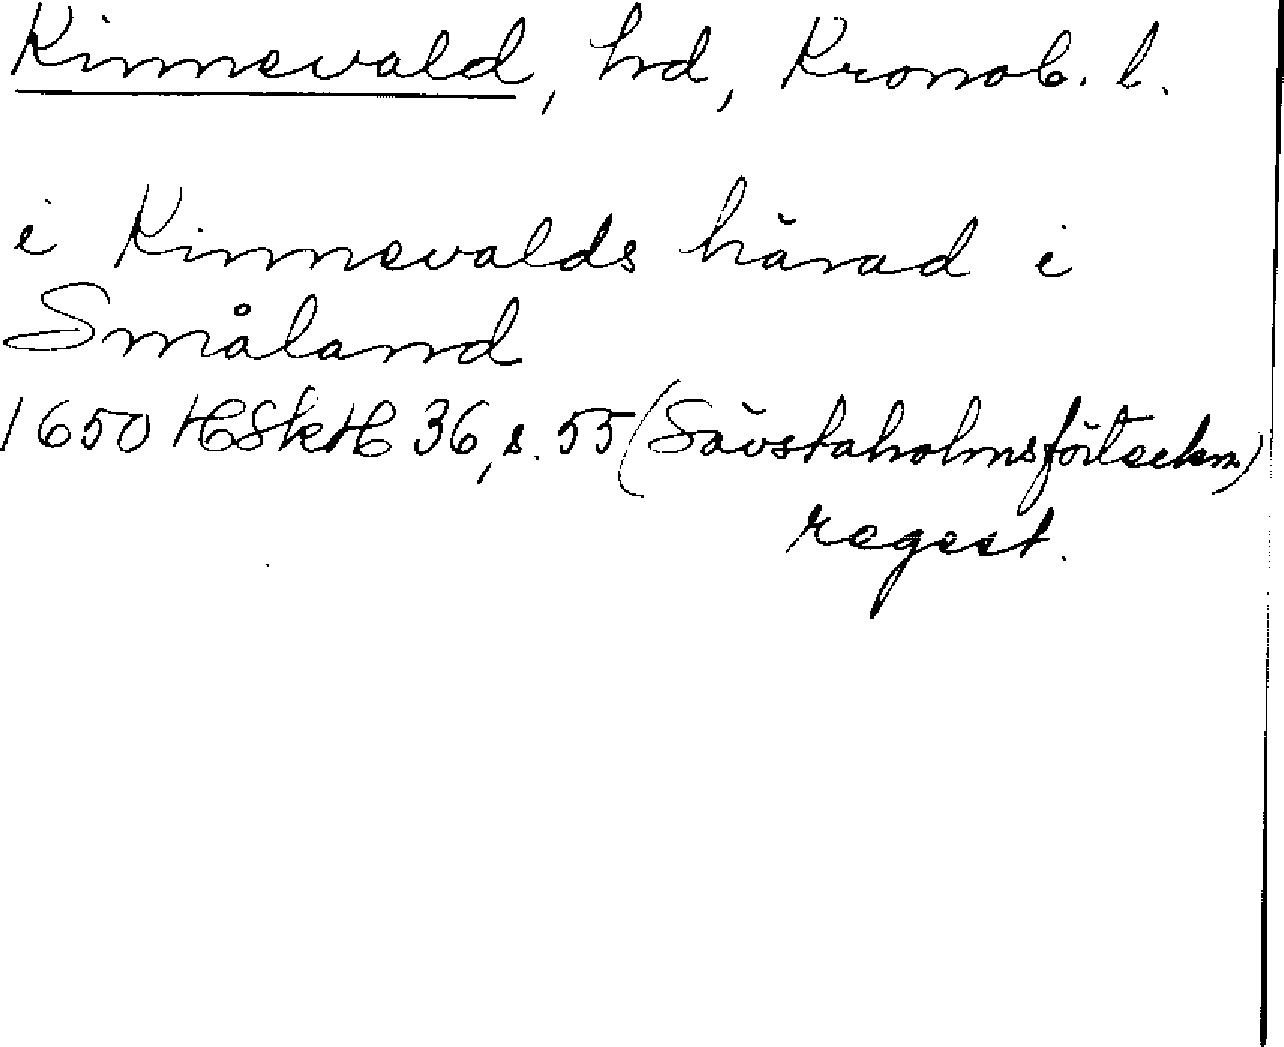 Kinnevald, hd, Kronob. l.
i Kinnevalds härad i
Småland
1650 HSkH 36, s. 55 (Sävstaholmsförteckn.)
regest.